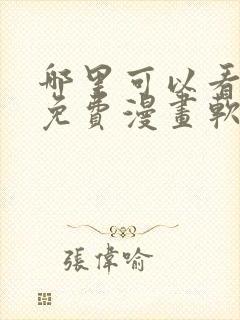 哪里可以看
免費漫畫軟
張偉喻